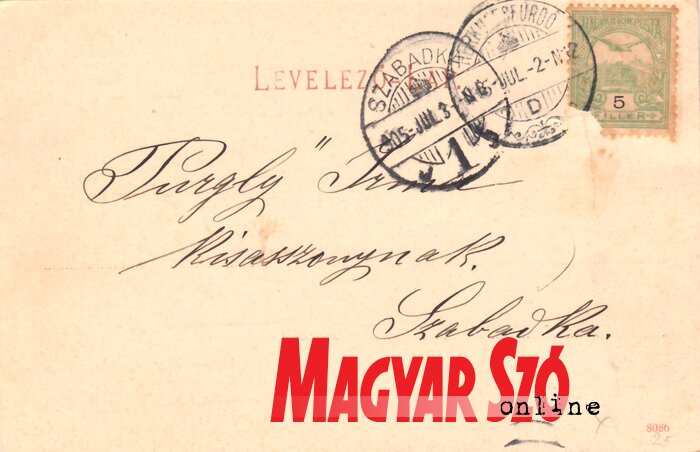 MAGYAR KIR. POSTA
5
FILLER
HERKULESFÜRDŐ
905 JUL. -2 N12
D
SZABADKA
905 JUL. 3
1
LEVELEZ
Purgly Irma
kisasszonynak.
Szabadka.
MAGYAR SZÓ
online
8086
25